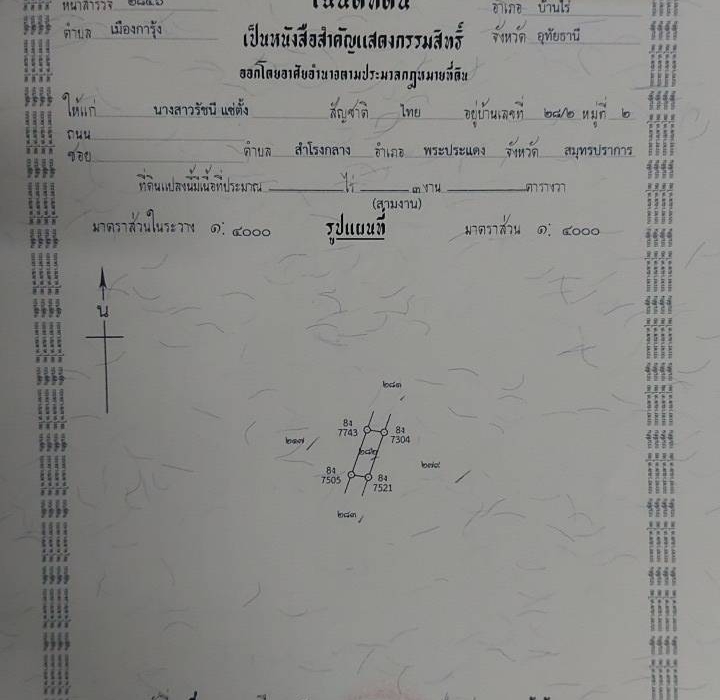 หน้าสำรวจ ๒๘๔๖ อำเภอ บ้านไร่
โฉนดที่ดิน
ตำบล เมืองการุ้ง เป็นหนังสือสำคัญแสดงกรรมสิทธิ์ จังหวัด อุทัยธานี
ออกโดยอาศัยอำนาจตามประมวลกฎหมายที่ดิน
ให้แก่ นางสาวรัชนี แซ่ตั้ง สัญชาติ ไทย อยู่บ้านเลขที่ ๒๘/๒ หมู่ที่ ๒
ถนน
ซอย ตำบล สำโรงกลาง อำเภอ พระประแดง จังหวัด สมุทรปราการ
ที่ดินแปลงนี้มีเนื้อที่ประมาณ ไร่ ๓ งาน ตารางวา
(สามงาน)
มาตราส่วนในระวาง ๑: ๔๐๐๐ รูปแผนที่ มาตราส่วน ๑: ๔๐๐๐
น
๒๘๑
8ง
7743
8ง
7304
๒๑๗
๒๘๒
๒๗๙
8ง
7505
8ง
7521
๒๘๓